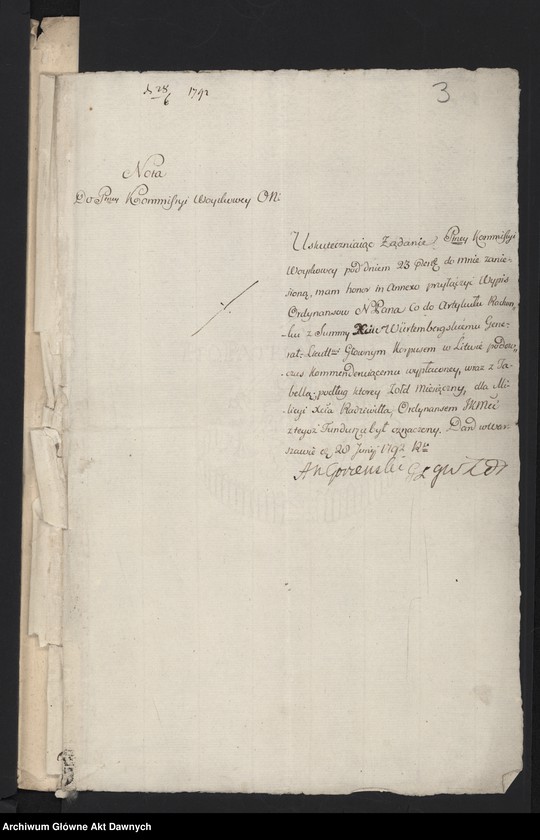 d. 28/6 1792
3
Nota
Do Prześ: Kommissyi Woyskowey ON:
Uskuteczniaiąc Żądanie Prześ: Kommissyi
Woyskowey pod dniem 23 do mnie zanie-
sioną, mam honor in Annexo przyłączyć Wypis
Ordynansow N Pana Co do Artykułu Rachun-
-ku z Summy Xciu Würtembergskiemu Gene-
rał-Leudtt: Głownym Korpusem w Litwie podów-
-czas kommenderuiącemu wypłaconey, wraz z Ta-
bellą, podług ktorey Żołd Miesięczny, dla Mi-
licyi Xcia Radziwiłła Ordynansem JKMci
z tegoż Funduszu był oznaczony. Dan w War-
szawie d. 28 Junij 1792 R:
A Gorzenski
Archiwum Główne Akt Dawnych